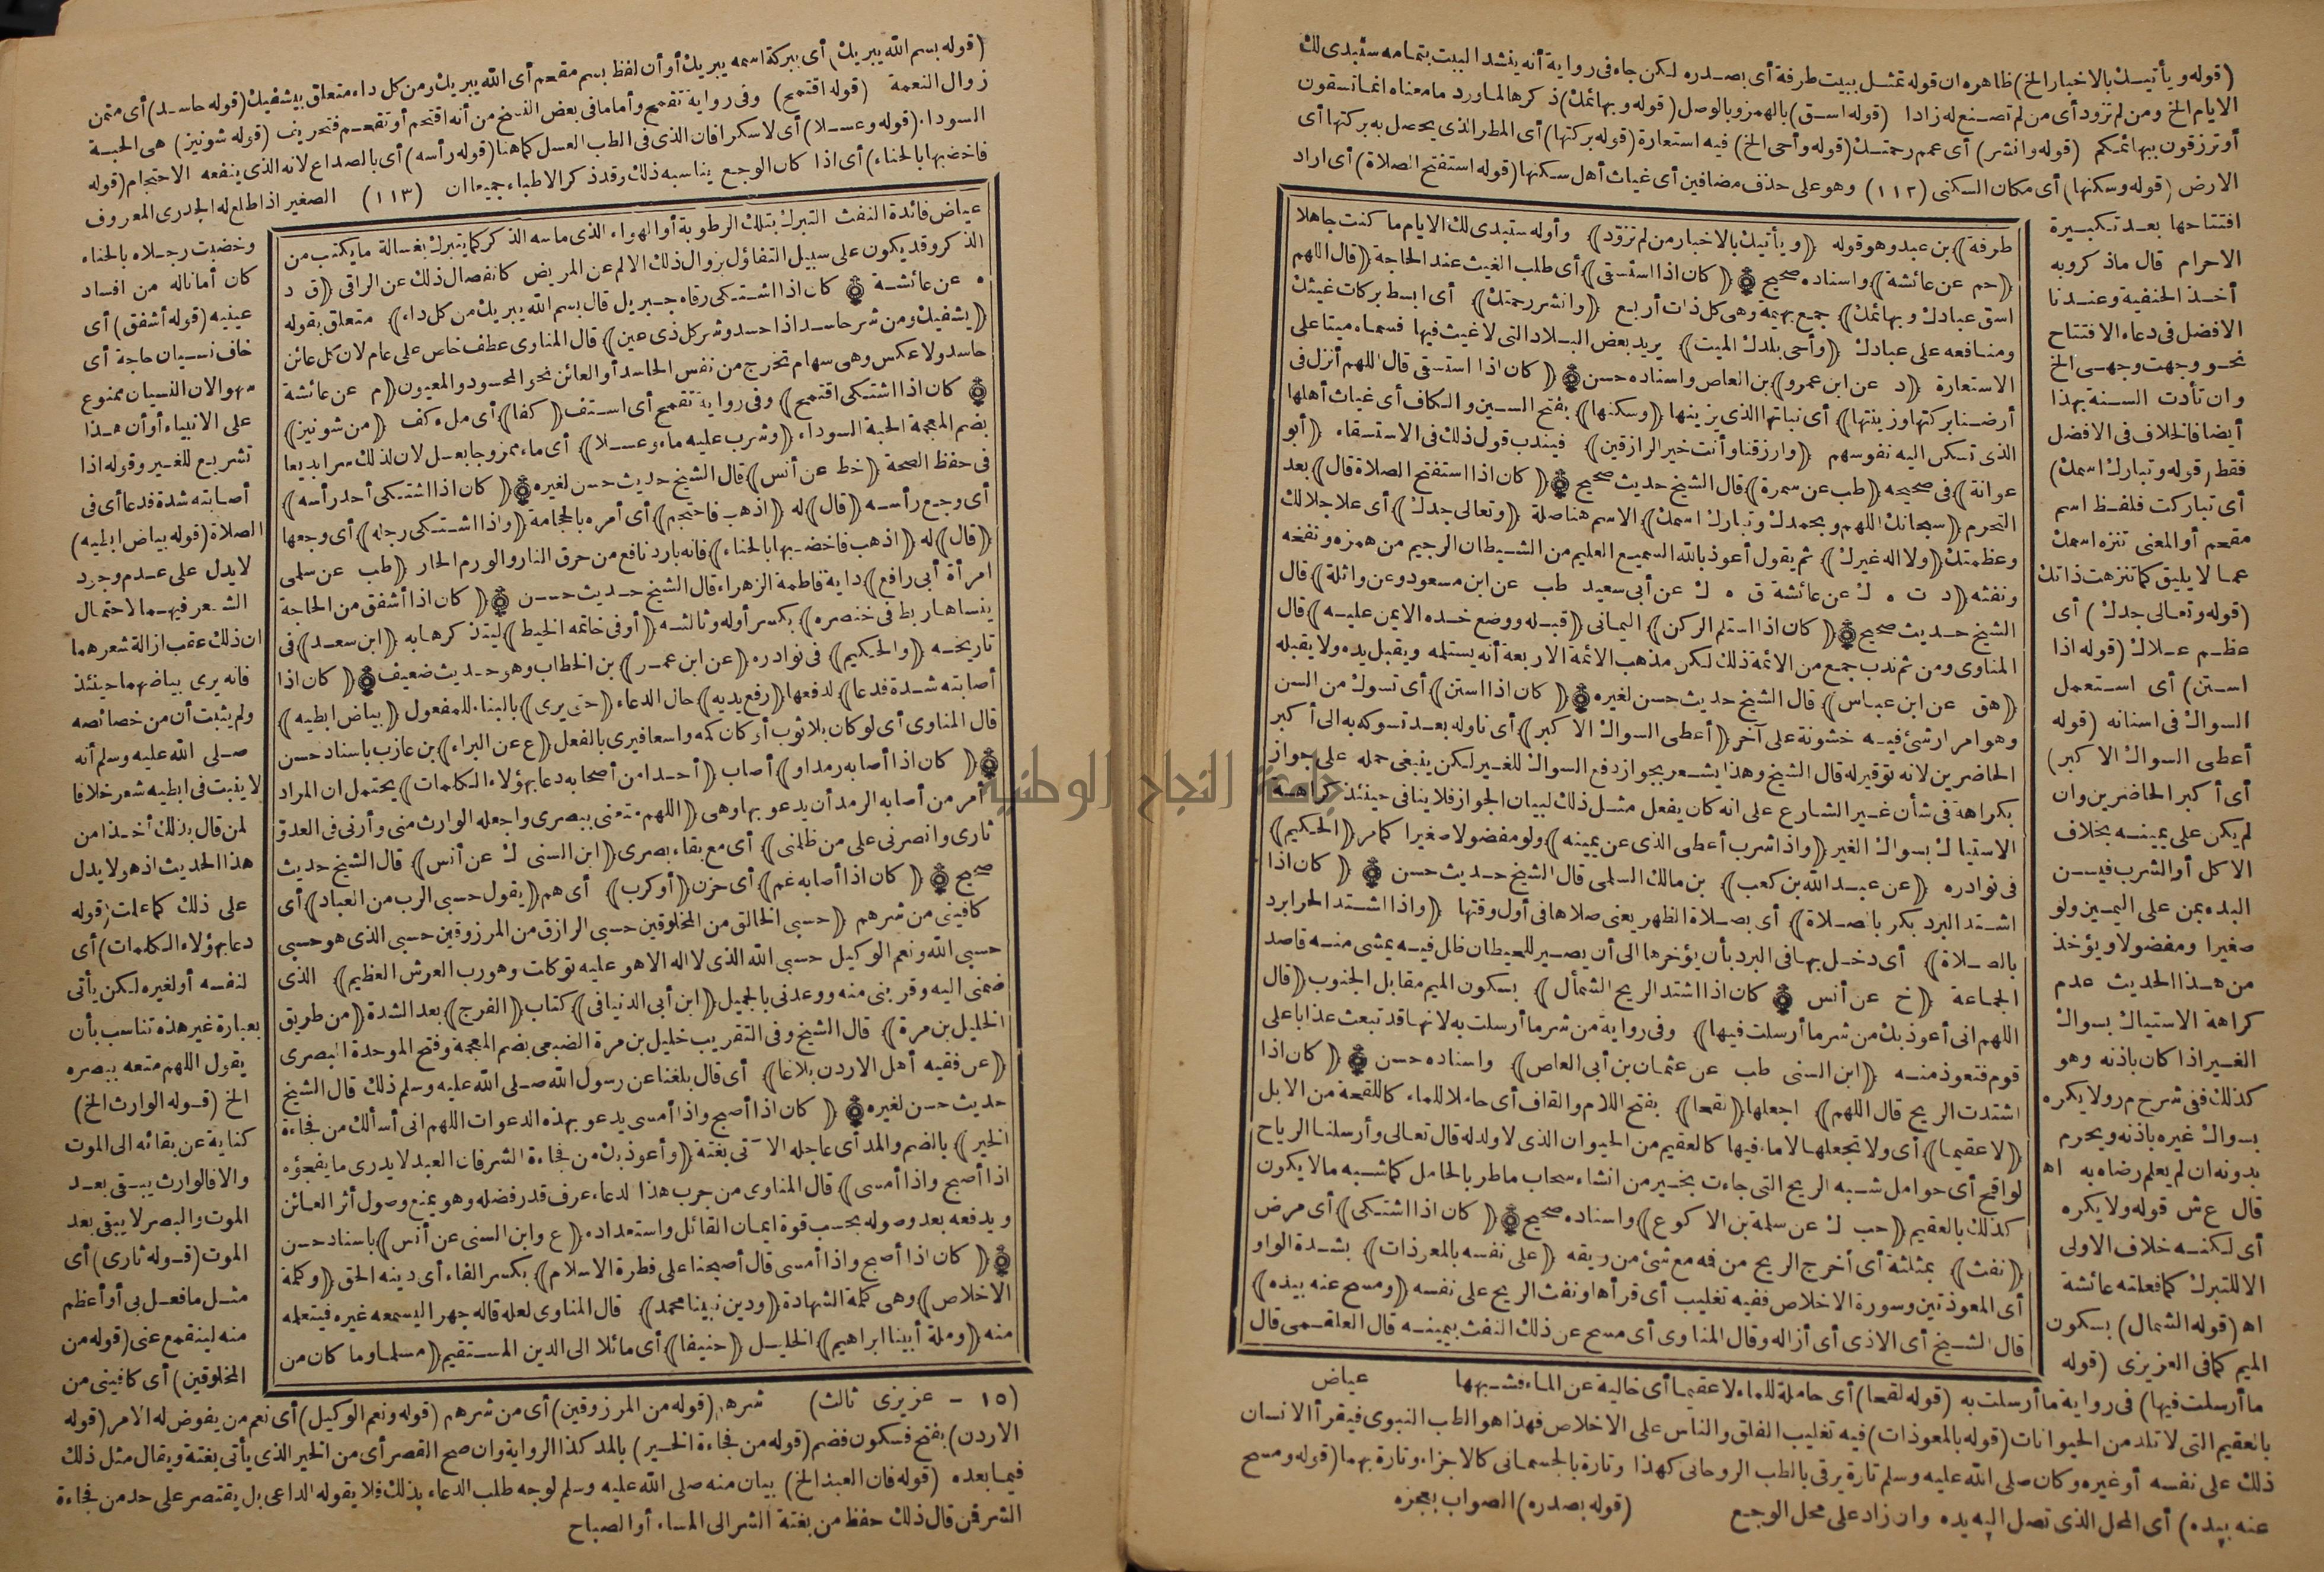 (قوله ويأتيك بالاخبار الخ) ظاهره ان قوله تمثل ببيت طرفة أى بصدره لكن جاء فى رواية أنه ينشد البيت بتمامه ستبدى لك
الايام الخ ومن لم تزود أى من لم تصنع له زادا (قوله اسق) بالهمز وبالوصل (قوله وبهائمك) ذكرها لما ورد ما معناه انما تسقون
أو ترزقون ببهائمكم (قوله وانشر) أى عمم رحمتك (قوله وأحى الخ) فيه استعارة (قوله بركتها) أى المطر الذى يحصل به بركتها أى
الارض (قوله وسكنها) أى مكان السكنى (١١٢) وهو على حذف مضافين أى غياث أهل سكنها (قوله استفتح الصلاة) أى اراد
افتتاحها بعد تكبيرة
الاحرام قال ماذكر وبه
أخذ الحنفية وعندنا
الافضل فى دعاء الافتتاح
نحو وجهت وجهى الخ
وان تأدت السنة بهذا
أيضا فالخلاف فى الافضل
فقط (قوله وتبارك اسمك)
أى تباركت فلفظ اسم
مقحم أو المعنى تنزه اسمك
عما لا يليق كما تنزهت ذاتك
(قوله وتعالى جدك) أى
عظم علاك (قوله اذا
استن) أى استعمل
السواك فى اسنانه (قوله
أعطى السواك الاكبر)
أى أكبر الحاضرين وان
لم يكن على يمينه بخلاف
الاكل أو الشرب فيسن
البدء بمن على اليمين ولو
صغيرا ومفضولا ويؤخذ
من هذا الحديث عدم
كراهة الاستياك بسواك
الغير اذا كان باذنه وهو
كذلك ففى شرح م ر ولا يكره
بسواك غيره باذنه ويحرم
بدونه ان لم يعلم رضاه به اه
قال ع ش قوله ولا يكره
أى لكنه خلاف الاولى
الا للتبرك كما فعلته عائشة
اه (قوله الشمال) بسكون
الميم كما فى العزيزى (قوله
طرفة) بن عبد وهو قوله (ويأتيك بالاخبار من لم تزود) وأوله ستبدى لك الايام ما كنت جاهلا
(حم عن عائشة) واسناده صحيح (كان اذا استسقى) أى طلب الغيث عند الحاجة (قال اللهم
اسق عبادك وبهائمك) جمع بهيمة وهى كل ذات أربع (وانشر رحمتك) أى ابسط بركات غيثك
ومنافعه على عبادك (وأحى بلدك الميت) يريد بعض البلاد التى لا غيث فيها فسماه ميتا على
الاستعارة (د عن ابن عمرو) بن العاص واسناده حسن (كان اذا استسقى قال اللهم أنزل فى
أرضنا بركتها وزينتها) أى نباتها الذى يزينها (وسكنها) بفتح السين والكاف أى غياث أهلها
الذى تسكن اليه نفوسهم (وارزقنا وأنت خير الرازقين) فيندب قول ذلك فى الاستسقاء (أبو
عوانة) فى صحيحه (طب عن سمرة) قال الشيخ حديث صحيح (كان اذا استفتح الصلاة قال) بعد
التحرم (سبحانك اللهم وبحمدك وتبارك اسمك) الاسم هنا صلة (وتعالى جدك) أى علا جلالك
وعظمتك (ولا اله غيرك) ثم يقول أعوذ بالله السميع العليم من الشيطان الرجيم من همزه ونفخه
ونفثه (د ت ه ك عن عائشة ق ه ك عن أبى سعيد طب عن ابن مسعود وعن واثلة) قال
الشيخ حديث صحيح (كان اذا استلم الركن) اليمانى (قبله ووضع خده الايمن عليه) قال
المناوى ومن ثم ندب جمع من الائمة ذلك لكن مذهب الائمة الاربعة أنه يستلمه ويقبل يده ولا يقبله
(هق عن ابن عباس) قال الشيخ حديث حسن لغيره (كان اذا استن) أى تسوك من السن
وهو امرار شئ فيه خشونة على آخر (أعطى السواك الاكبر) أى ناوله بعد تسوكه به الى أكبر
الحاضرين لانه توقير له قال الشيخ وهذا يشعر بجواز دفع السواك للغير لكن ينبغى حمله على جواز
بكراهة فى شأن غير الشارع على انه كان يفعل مثل ذلك لبيان الجواز فلا ينافى حينئذ كراهة
الاستياك بسواك الغير (واذا شرب أعطى الذى عن يمينه) ولو مفضولا صغيرا كما مر (الحكيم)
فى نوادره (عن عبد الله بن كعب) بن مالك السلمى قال الشيخ حديث حسن (كان اذا
اشتد البرد بكر بالصلاة) أى بصلاة الظهر يعنى صلاها فى أول وقتها (واذا اشتد الحر ابرد
بالصلاة) أى دخل بها فى البرد بأن يؤخرها الى أن يصير للحيطان ظل فيه يمشى منه قاصد
الجماعة (خ عن أنس كان اذا اشتد الريح الشمأل) بسكون الميم مقابل الجنوب (قال
اللهم انى أعوذ بك من شر ما أرسلت فيها) وفى رواية من شر ما أرسلت به لانها قد تبعث عذابا على
قوم فتعوذ منه (ابن السنى طب عن عثمان بن أبى العاص) واسناده حسن (كان اذا
اشتدت الريح قال اللهم) اجعلها (لقحا) بفتح اللام والقاف أى حاملا للماء كاللقحة من الابل
(لا عقيما) أى ولا تجعلها لا ماء فيها كالعقيم من الحيوان الذى لا ولد له قال تعالى وأرسلنا الرياح
لواقح أى حوامل شبه الريح التى جاءت بخير من انشاء سحاب ماطر بالحامل كما شبه ما لا يكون
كذلك بالعقيم (حب ك عن سلمة بن الاكوع) واسناده صحيح (كان اذا اشتكى) أى مرض
(نفث) بمثلثة أى أخرج الريح من فمه مع شئ من ريقه (على نفسه بالمعوذات) بشدة الواو
أى المعوذتين وسورة الاخلاص ففيه تغليب أى قرأها ونفث الريح على نفسه (ومسح عنه بيده)
قال الشيخ أى الاذى أى أزاله وقال المناوى أى مسح عن ذلك النفث بيمينه قال العلقمى قال
عياض
ما أرسلت فيها) فى رواية ما أرسلت به (قوله لقحا) أى حاملة للماء لا عقيما أى خالية عن الماء فشبهها
بالعقيم التى لا تلد من الحيوانات (قوله بالمعوذات) فيه تغليب الفلق والناس على الاخلاص فهذا هو الطب النبوى فيقرأ الانسان
ذلك على نفسه أو غيره وكان صلى الله عليه وسلم تارة يرقى بالطب الروحانى كهذا وتارة بالجسمانى كالاجزاء وتارة بهما (قوله ومسح
عنه بيده) أى المحل الذى تصل اليه يده وان زاد على محل الوجع (قوله بصدره) الصواب بعجزه
(قوله بسم الله يبريك) أى ببركة اسمه يبريك أو أن لفظ بسم مقحم أى الله يبريك ومن كل داء متعلق بيشفيك (قوله حاسد) أى متمن
زوال النعمة (قوله اقتمح) وفى رواية تقمح وأما ما فى بعض النسخ من أنه اقتحم أو تقحم فتحريف (قوله شونيز) هى الحبة
السوداء (قوله وعسلا) أى لا سكرا فان الذى فى الطب العسل كما هنا (قوله رأسه) أى بالصداع لانه الذى ينفعه الاحتجام (قوله
فاخضبها بالحناء) أى اذا كان الوجع يناسبه ذلك وقد ذكر الاطباء جميعا ان (١١٣) الصغير اذا طلع له الجدرى المعروف
وخضبت رجلاه بالحناء
كان أمانا له من افساد
عينيه (قوله أشفق) أى
خاف نسيان حاجة أى
سهوا لان النسيان ممنوع
على الانبياء أو أن هذا
تشريع للغير وقوله اذا
أصابته شدة فدعا أى فى
الصلاة (قوله بياض ابطيه)
لا يدل على عدم وجود
الشعر فيهما لاحتمال
ان ذلك عقب ازالة شعرهما
فانه يرى بياضهما حينئذ
ولم يثبت أن من خصائصه
صلى الله عليه وسلم أنه
لا ينبت فى ابطيه شعر خلافا
لمن قال بذلك أخذا من
هذا الحديث اذ هو لا يدل
على ذلك كما علمت (قوله
دعا بهؤلاء الكلمات) أى
لنفسه أو لغيره لكن يأتى
بعبارة غير هذه تناسب بأن
يقول اللهم متعه ببصره
الخ (قوله الوارث الخ)
كناية عن بقائه الى الموت
والا فالوارث يبقى بعد
الموت والبصر لا يبقى بعد
الموت (قوله ثارى) أى
مثل ما فعل بى أو أعظم
منه لينقمع عنى (قوله من
المخلوقين) أى كافينى من
عياض فائدة النفث التبرك بتلك الرطوبة أو الهواء الذى ماسه الذكر كما يتبرك بغسالة ما يكتب من
الذكر وقد يكون على سبيل التفاؤل بزوال ذلك الالم عن المريض كانفصال ذلك عن الراقى (ق د
ه عن عائشة كان اذا اشتكى رقاه جبريل قال بسم الله يبريك من كل داء) متعلق بقوله
(يشفيك ومن شر حاسد اذا حسد وشر كل ذى عين) قال المناوى عطف خاص على عام لان كل عائن
حاسد ولا عكس وهى سهام تخرج من نفس الحاسد أو العائن نحو المحسود والمعيون (م عن عائشة
كان اذا اشتكى اقتمح) وفى رواية تقمح أى استف (كفا) أى ملء كف (من شونيز)
بضم المعجمة الحبة السوداء (وشرب عليه ماء وعسلا) أى ماء ممزوجا بعسل لان لذلك سرا بديعا
فى حفظ الصحة (خط عن أنس) قال الشيخ حديث حسن لغيره (كان اذا اشتكى أحد رأسه)
أى وجع رأسه (قال) له (اذهب فاحتجم) أى أمره بالحجامة (واذا اشتكى رجله) أى وجعها
(قال) له (اذهب فاخضبها بالحناء) فانه بارد نافع من حرق النار والورم الحار (طب عن سلمى
امرأة أبى رافع) داية فاطمة الزهراء قال الشيخ حديث حسن (كان اذا أشفق من الحاجة
ينساها ربط فى خنصره) بكسر أوله وثالثه (أو فى خاتمه الخيط) ليتذكرها به (ابن سعد) فى
تاريخه (والحكيم) فى نوادره (عن ابن عمر) بن الخطاب وهو حديث ضعيف (كان اذا
أصابته شدة فدعا) لدفعها (رفع يديه) حال الدعاء (حتى يرى) بالبناء للمفعول (بياض ابطيه)
قال المناوى أى لو كان بلا ثوب أو كان كمه واسعا فيرى بالفعل (ع عن البراء) بن عازب باسناد حسن
(كان اذا أصابه رمد أو) أصاب (أحدا من أصحابه دعا بهؤلاء الكلمات) يحتمل ان المراد
أمر من أصابه الرمد أن يدعو بها وهى (اللهم متعنى ببصرى واجعله الوارث منى وأرنى فى العدو
ثارى وانصرنى على من ظلمنى) أى مع بقاء بصرى (ابن السنى ك عن أنس) قال الشيخ حديث
صحيح (كان اذا أصابه غم) أى حزن (أو كرب) أى هم (يقول حسبى الرب من العباد) أى
كافينى من شرهم (حسبى الخالق من المخلوقين حسبى الرازق من المرزوقين حسبى الذى هو حسبى
حسبى الله ونعم الوكيل حسبى الله الذى لا اله الا هو عليه توكلت وهو رب العرش العظيم) الذى
ضمنى اليه وقربنى منه ووعدنى بالجميل (ابن أبى الدنيا فى) كتاب (الفرج) بعد الشدة (من طريق
الخليل بن مرة) قال الشيخ وفى التقريب خليل بن مرة الضبعى بضم المعجمة وفتح الموحدة البصرى
(عن فقيه أهل الاردن بلاغا) أى قال بلغنا عن رسول الله صلى الله عليه وسلم ذلك قال الشيخ
حديث حسن لغيره (كان اذا أصبح واذا أمسى يدعو بهذه الدعوات اللهم انى أسألك من فجاءة
الخير) بالضم والمد أى عاجله الآتى بغتة (وأعوذ بك من فجاءة الشر فان العبد لا يدرى ما يفجؤه
اذا أصبح واذا أمسى) قال المناوى من جرب هذا الدعاء عرف قدر فضله وهو يمنع وصول أثر العائن
ويدفعه بعد وصوله بحسب قوة ايمان القائل واستعداده (ع وابن السنى عن أنس) باسناد حسن
(كان اذا أصبح واذا أمسى قال أصبحنا على فطرة الاسلام) بكسر الفاء أى دينه الحق (وكلمة
الاخلاص) وهى كلمة الشهادة (ودين نبينا محمد) قال المناوى لعله قاله جهرا ليسمعه غيره فيتعلمه
منه (وملة أبينا ابراهيم) الخليل (حنيفا) أى مائلا الى الدين المستقيم (مسلما وما كان من
(١٥ - عزيزى ثالث) شرهم (قوله من المرزوقين) أى من شرهم (قوله ونعم الوكيل) أى نعم من يفوض له الامر (قوله
الاردن) بفتح فسكون فضم (قوله من فجاءة الخير) بالمد كذا الرواية وان صح القصر أى من الخير الذى يأتى بغتة ويقال مثل ذلك
فيما بعده (قوله فان العبد الخ) بيان منه صلى الله عليه وسلم لوجه طلب الدعاء بذلك فلا يقوله الداعى بل يقتصر على حد من فجاءة
الشر فمن قال ذلك حفظ من بغتة الشر الى المساء أو الصباح
جامعة النجاح الوطنية